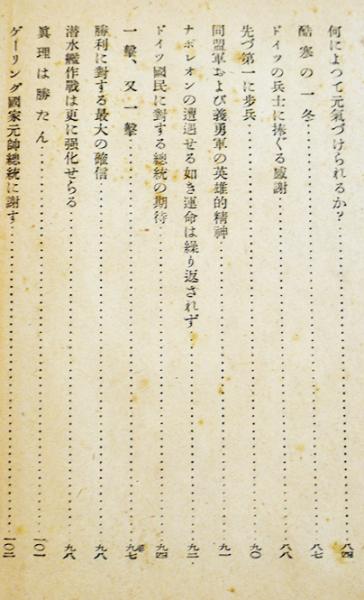 何によつて元氣づけられるか?……八四
酷寒の一冬……八七
ドイツの兵士に捧ぐる感謝……八八
先づ第一に歩兵……九〇
同盟軍および義勇軍の英雄的精神……九一
ナポレオンの遭遇せる如き運命は繰り返されず……九二
ドイツ國民に對する總統の期待……九四
一擊、又一擊……九七
勝利に對する最大の確信……九八
潜水艦作戰は更に强化せらる……九八
眞理は勝たん……一〇一
ゲーリング國家元帥總統に謝す……一〇二